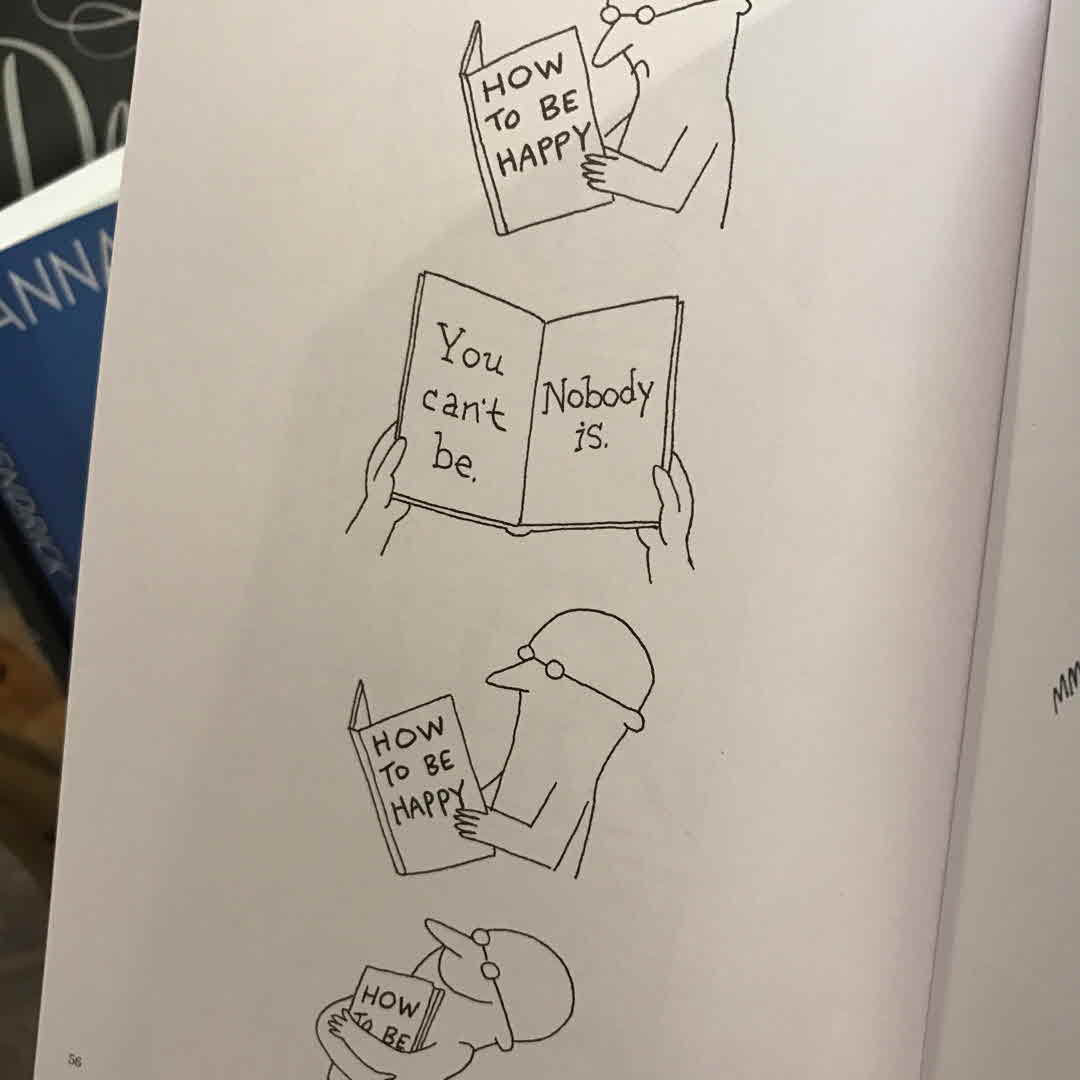 HOW
TO BE
HAPPY
You
can't
be.
Nobody
is.
HOW
TO BE
HAPPY
HOW
TO BE
56
ANNA
KENDRICK
MM